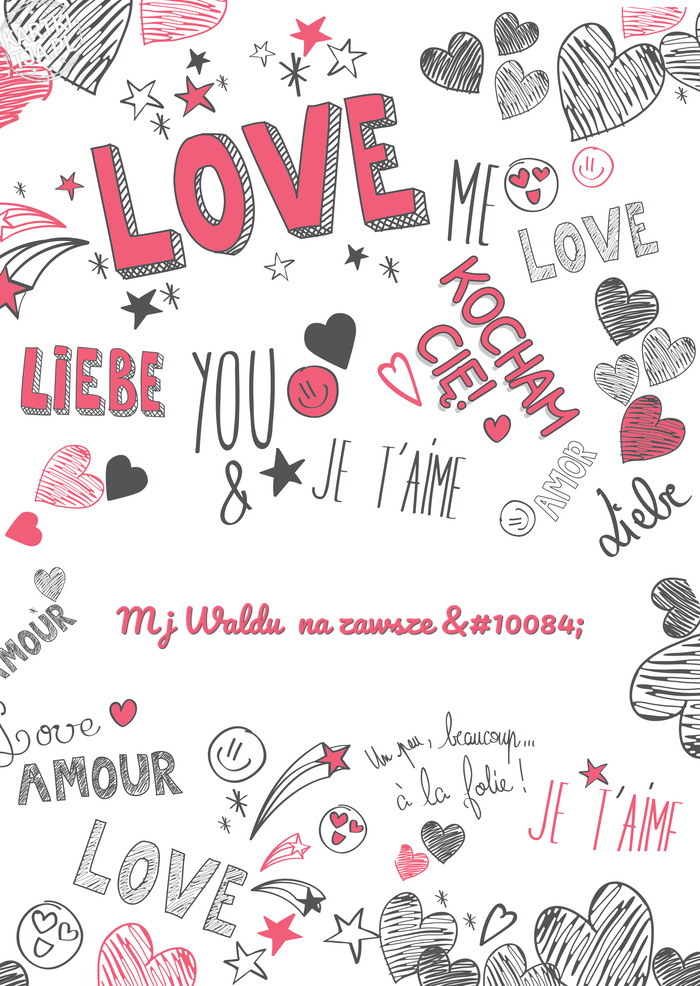 LOVE
ME
LOVE
KOCHAM
CIĘ!
LiEBE
YOU
&
JE T'AIME
AMOR
Liebe
AMOUR
Mj Waldu na zawsze &#10084;
Love
AMOUR
Un peu, beaucoup...
à la folie!
JE T'AIME
LOVE